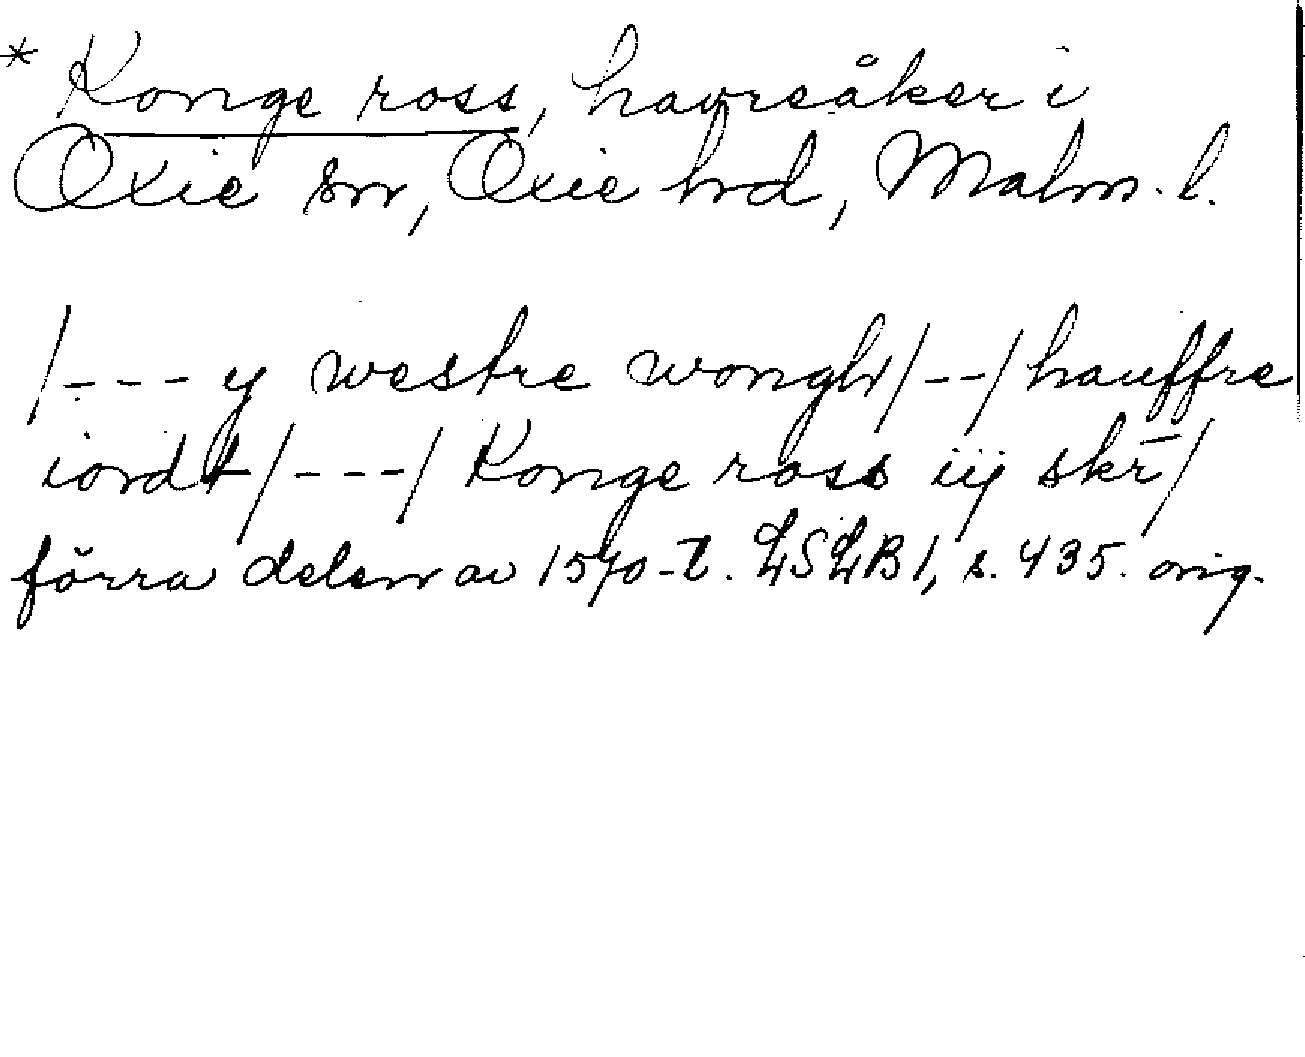 * Konge ross, havreåker i
Oxie sn, Oxie hd, Malm. l.
/--- y westre wongh/--/hauffre
iordt/---/Konge ross iij skr̄/
förra delen av 1570-t. LSLB 1, s. 435. orig.